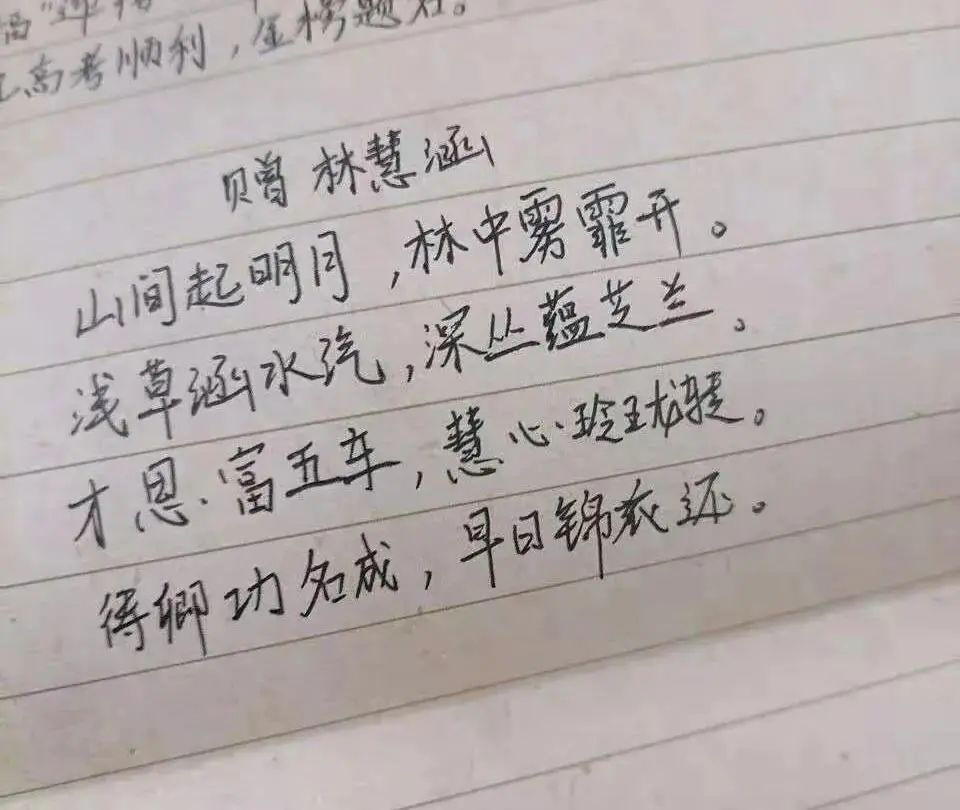 高考顺利，金榜题名。
赠林慧涵
山间起明月，林中雾霏开。
浅草涵水汽，深丛蕴芝兰。
才思富五车，慧心玲珑
得卿功名成，早日锦衣还。